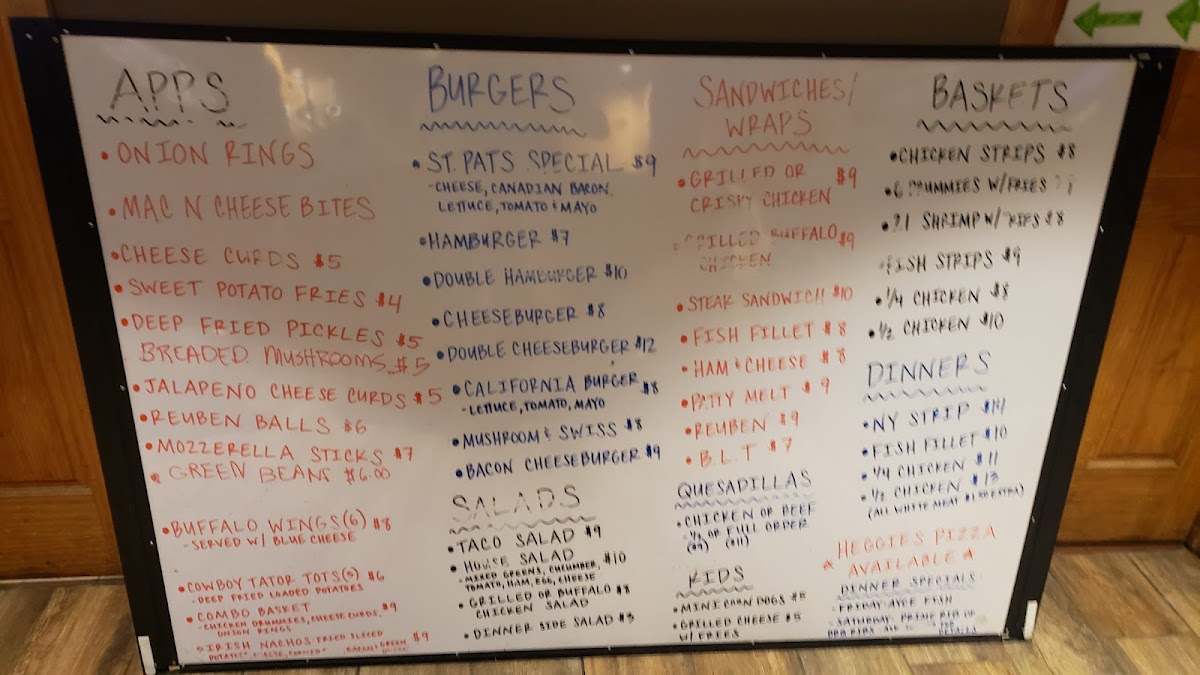 APPS
• ONION RINGS
• MAC N CHEESE BITES
• CHEESE CURDS $5
• SWEET POTATO FRIES $4
• DEEP FRIED PICKLES $5
BREADED MUSHROOMS $5
• JALAPENO CHEESE CURDS $5
• REUBEN BALLS $6
• MOZZERELLA STICKS $7
• GREEN BEANS $6.00
• BUFFALO WINGS (6) $8
- SERVED W/ BLUE CHEESE
• COWBOY TATOR TOTS $6
- DEEP FRIED LOADED POTATOES
• COMBO BASKET $9
- CHICKEN DRUMMIES, CHEESE CURDS,
ONION RINGS
IRISH NACHOS: FRIED SLICED $9
BURGERS
• ST. PATS SPECIAL $9
- CHEESE, CANADIAN BACON,
LETTUCE, TOMATO & MAYO
• HAMBURGER $7
• DOUBLE HAMBURGER $10
• CHEESEBURGER $8
• DOUBLE CHEESEBURGER $12
• CALIFORNIA BURGER $8
- LETTUCE, TOMATO, MAYO
• MUSHROOM & SWISS $8
• BACON CHEESEBURGER $9
SALADS
• TACO SALAD $9
• HOUSE SALAD $10
- MIXED GREENS, CUCUMBER,
TOMATO, HAM, EGG, CHEESE
• GRILLED OR BUFFALO $8
CHICKEN SALAD
• DINNER SIDE SALAD $3
SANDWICHES/
WRAPS
• GRILLED OR $9
CRISPY CHICKEN
• GRILLED BUFFALO $9
CHICKEN
• STEAK SANDWICH $10
• FISH FILLET $8
• HAM & CHEESE $8
• PATTY MELT $9
• REUBEN $9
• B.L.T $7
QUESADILLAS
• CHICKEN OR BEEF
- 1/2 OR FULL ORDER
($9) ($11)
KIDS
• MINI CORN DOGS $5
• GRILLED CHEESE $5
W/ FRIES
BASKETS
• CHICKEN STRIPS $8
• 6 DRUMMIES W/FRIES
• 21 SHRIMP W/ FRIES $8
• FISH STRIPS $9
• 1/4 CHICKEN $8
• 1/2 CHICKEN $10
DINNERS
• NY STRIP $14
• FISH FILLET $10
• 1/4 CHICKEN $11
• 1/2 CHICKEN $13
(ALL WHITE MEAT $1 EXTRA)
HEGGIES PIZZA
AVAILABLE
DINNER SPECIALS
- FRIDAY AYCE FISH
- SATURDAY, PRIME RIB OR
BBQ RIBS